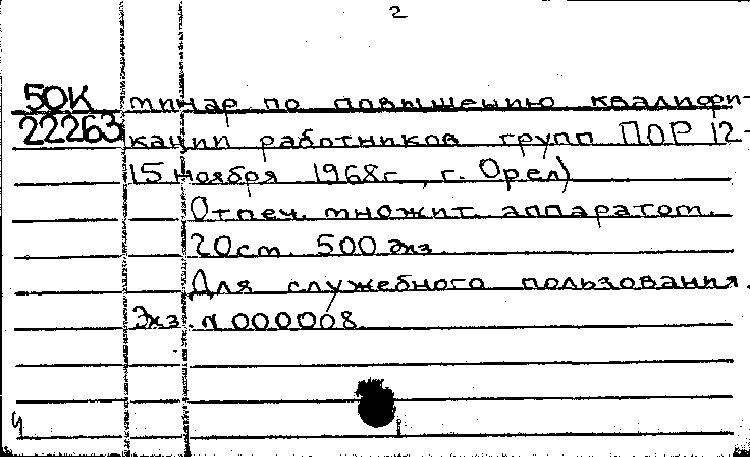 2
50К минар по повышению квалифи-
22263 кации работников групп ПОР 12-
15 ноября 1968г, г. Орел)
Отпеч. множит. аппаратом.
20 ст. 500 экз.
Для служебного пользования.
Экз. № 000008.
Ч